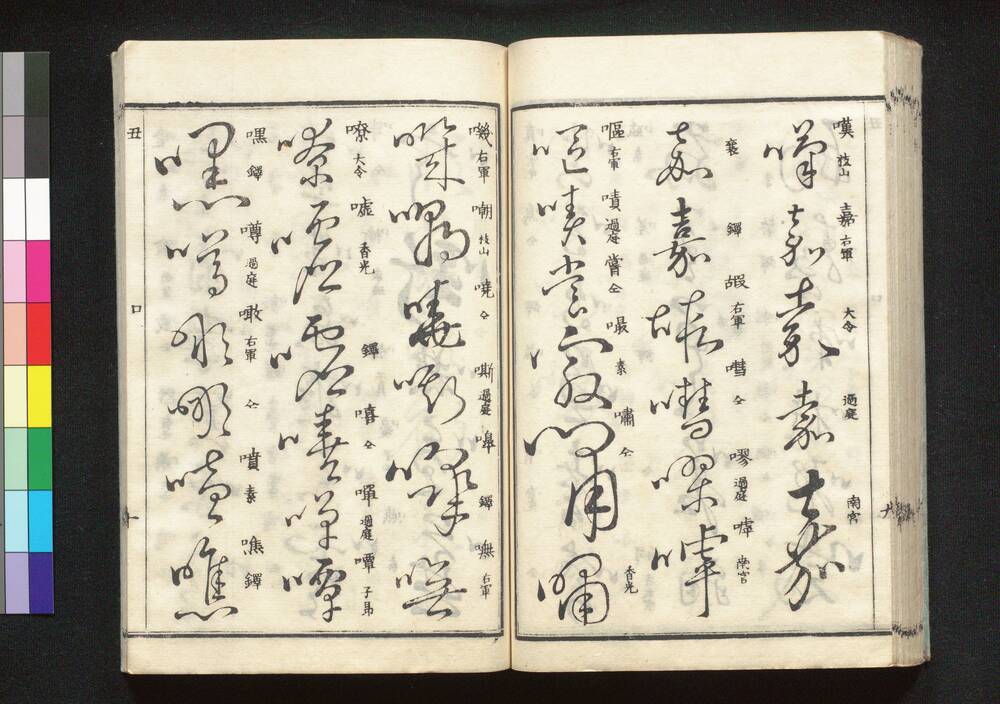 嘆 枝山 嘉 右軍 大令 過庭 南宮
襄 鐸 嘏 右軍 嘒 仝 嘐 過庭 嘑 南宮
嘔 右軍 嘖 過庭 嘗 仝 嘬 素 嘯 仝 香光
嘰 右軍 嘲 枝山 嘵 仝 嘶 過庭 嘷 鐸 嘸 右軍
嘹 大令 嘘 香光 鐸 嘻 仝 嘽 過庭 嘾 子昂
嘿 鐸 噂 過庭 噉 右軍 仝 噴 素 噍 鐸
丑 口 十